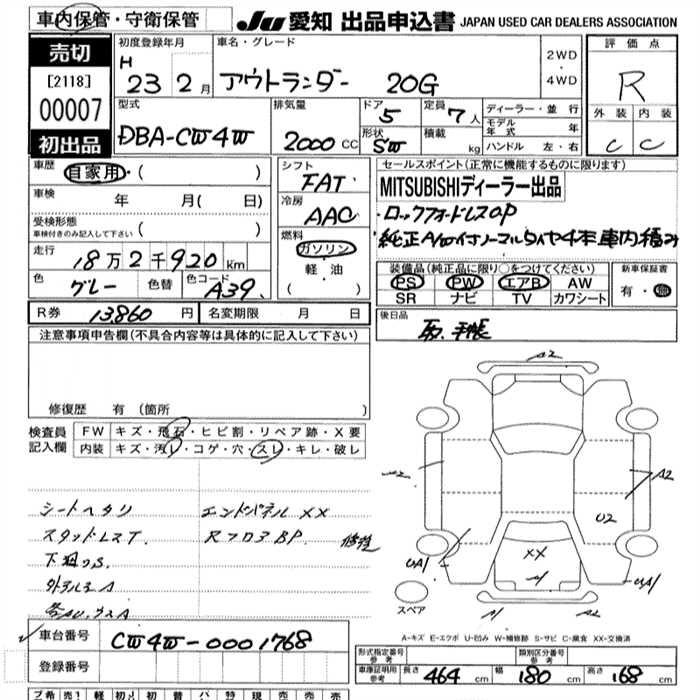 車内保管・守衛保管
JU 愛知 出品申込書 JAPAN USED CAR DEALERS ASSOCIATION
売切
[2118]
00007
初出品
初度登録年月
H 23 2月
車名・グレード
アウトランダー 20G
2WD
・
4WD
評価点
R
外装 内装
C C
型式
DBA-CW4W
排気量
2000 CC
ドア 5
形状 SW
定員 7人
積載 kg
ディーラー・並行
モデル年式 年
ハンドル 左・右
車歴
自家用・( )
車検 年 月( 日)
受検形態
車検付きのみ記入して下さい ( )
走行
18万2千920Km
色 グレー 色替 色コード A39
シフト
FAT
冷房
AAC
燃料
ガソリン
軽・油
( )
セールスポイント(正常に機能するものに限ります)
MITSUBISHIディーラー出品
・ロックフォードレスOP
・純正A/Wイナノーマルタイヤ4本車内積み
装備品(純正品に限り○をつけてください)
PS PW エアB AW
SR ナビ TV カワシート
新車保証書
有・無
R券 13860円
名変期限 月 日
後日品
取、手帳
注意事項申告欄(不具合内容等は具体的に記入して下さい)
修復歴 有(箇所 )
検査員
記入欄
FW キズ・飛石・ヒビ割・リペア跡・X要
内装 キズ・汚レ・コゲ・穴・スレ・キレ・破レ
シートヘタリ
スタッドレスT.
下廻りS
外アルミA
エンドパネルXX
RフロアBP
修復
A2
A2
A2
U2
XX
UA1
UA1
A1
A1
スペア
A-キズ E-エクボ U-凹み W-補修跡 S-サビ C-腐食 XX-交換済
車台番号 CW4W-0001768
登録番号
形式指定番号
参考
類別区分番号
参考
車庫証明用
参考
長さ 464 cm 幅 180 cm 高さ 168 cm